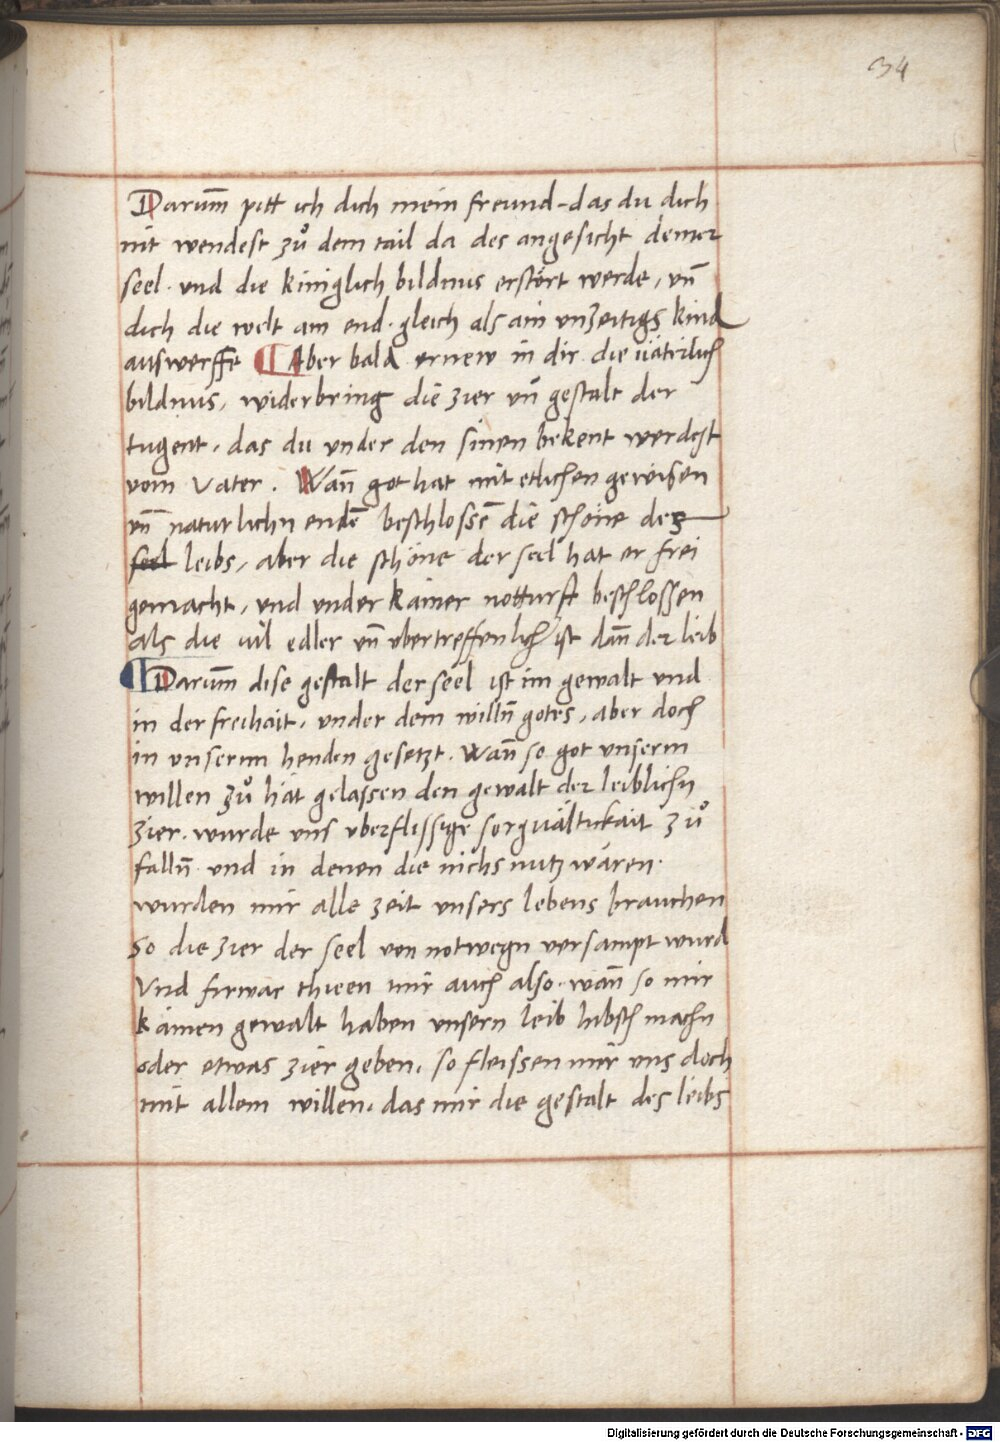 34
Darum̄ pitt ich dich mein freund - das du dich
nit wendest zů dem tail da des angesicht deiner
seel · und die kiniglich bildnus erstört werde, vn̄
dich die welt am end · gleich als ain vnzeitigs kind
auswerffe ¶ Aber bald ernew in dir die vätrlich
bildnus, widerbring die zier vn̄ gestalt der
tugent · das du vnder den sinen bekent werdest
vom Vater . Wan̄ got hat mit etlichen gewisen
vn̄ naturlichn enden̄ beschlossen̄ die schöne des
seel leibs, aber die schöne der seel hat er frei
gemacht, vnd vnder kainer notturft beschlossen
als die vil edler vn̄ vbertreffenlich ist dan̄ der leib
¶ Darum̄ dise gestalt der seel ist im gewalt vnd
in der freihait, vnder dem willn̄ gotes, aber doch
in vnserm henden gesetzt . Wan̄ so got vnserm
willen zů hät gelassen den gewalt der leiblichn
zier · wurde vns vberflissige sorgvältickait zů
falln̄ · vnd in denen die nichs nutz wären ·
wurden mir alle zeit vnsers lebens brauchen
so die zier der seel von notwegn versampt wurd
Vnd firwar thuen mir auch also · wan̄ so mir
kainen gewalt haben vnsern leib hibsch machn
oder etwas zier geben, so fleissen mir vns doch
mit allem willen, das mir die gestalt des leibs
Digitalisierung gefördert durch die Deutsche Forschungsgemeinschaft - DFG